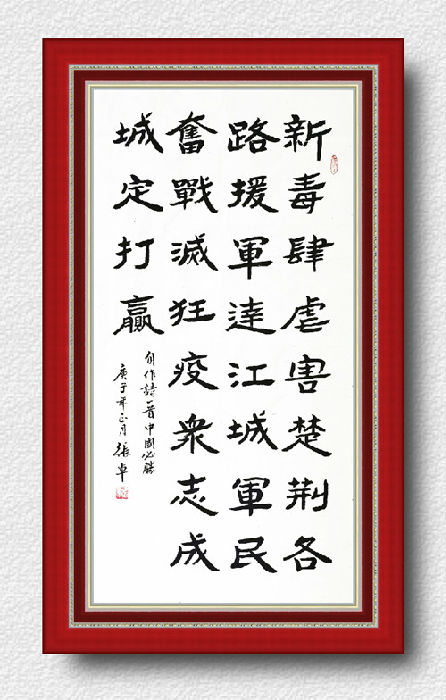 新毒肆虐害楚荆各
路援軍達江城軍民
奮戰滅狂疫衆志成
城定打贏
自作詩一首中國必勝
庚子年正月張卓